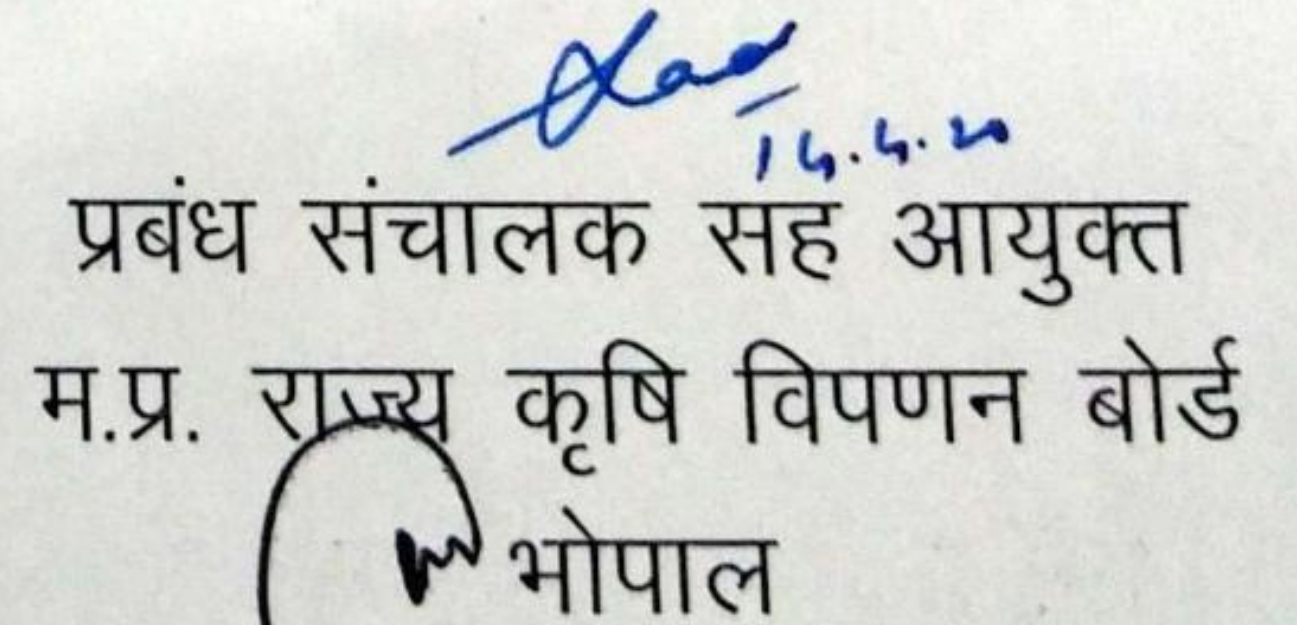 14.4.20
प्रबंध संचालक सह आयुक्त
म.प्र. राज्य कृषि विपणन बोर्ड
भोपाल